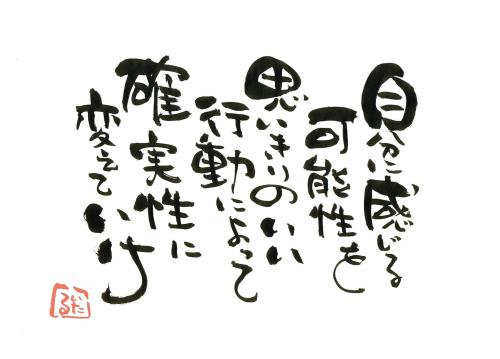 自分に感じる
可能性を
思いきりのいい
行動によって
確実性に
変えていけ